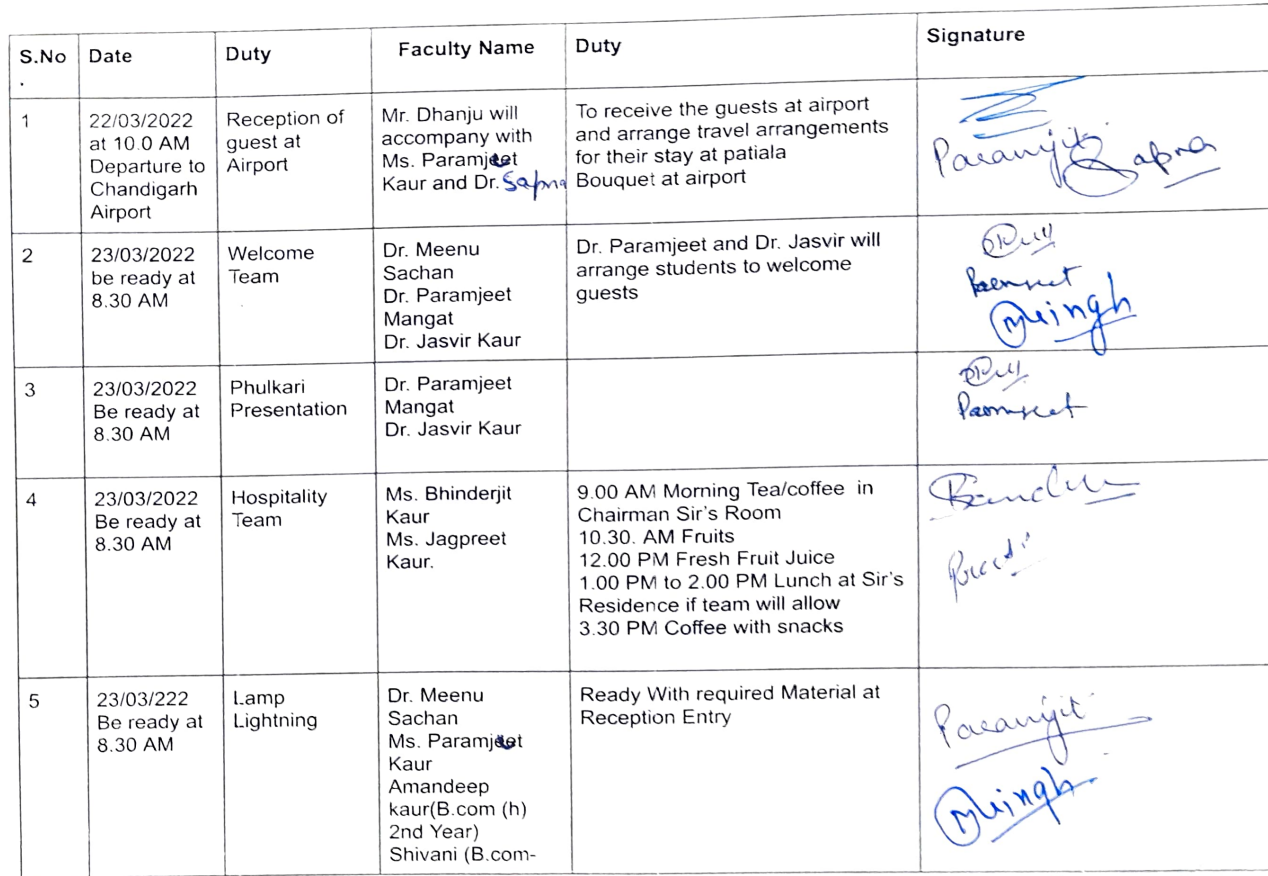 S.No
.
Date
Duty
Faculty Name
Duty
Signature
1
22/03/2022
at 10.0 AM
Departure to
Chandigarh
Airport
Reception of
guest at
Airport
Mr. Dhanju will
accompany with
Ms. Paramjeet
Kaur and Dr. Sapna
To receive the guests at airport
and arrange travel arrangements
for their stay at patiala
Bouquet at airport
Paramjit
Sapna
2
23/03/2022
be ready at
8.30 AM
Welcome
Team
Dr. Meenu
Sachan
Dr. Paramjeet
Mangat
Dr. Jasvir Kaur
Dr. Paramjeet and Dr. Jasvir will
arrange students to welcome
guests
3
23/03/2022
Be ready at
8.30 AM
Phulkari
Presentation
Dr. Paramjeet
Mangat
Dr. Jasvir Kaur
4
23/03/2022
Be ready at
8.30 AM
Hospitality
Team
Ms. Bhinderjit
Kaur
Ms. Jagpreet
Kaur.
9.00 AM Morning Tea/coffee in
Chairman Sir's Room
10.30. AM Fruits
12.00 PM Fresh Fruit Juice
1.00 PM to 2.00 PM Lunch at Sir's
Residence if team will allow
3.30 PM Coffee with snacks
5
23/03/222
Be ready at
8.30 AM
Lamp
Lightning
Dr. Meenu
Sachan
Ms. Paramjeet
Kaur
Amandeep
kaur(B.com (h)
2nd Year)
Shivani (B.com-
Ready With required Material at
Reception Entry
Paramjit